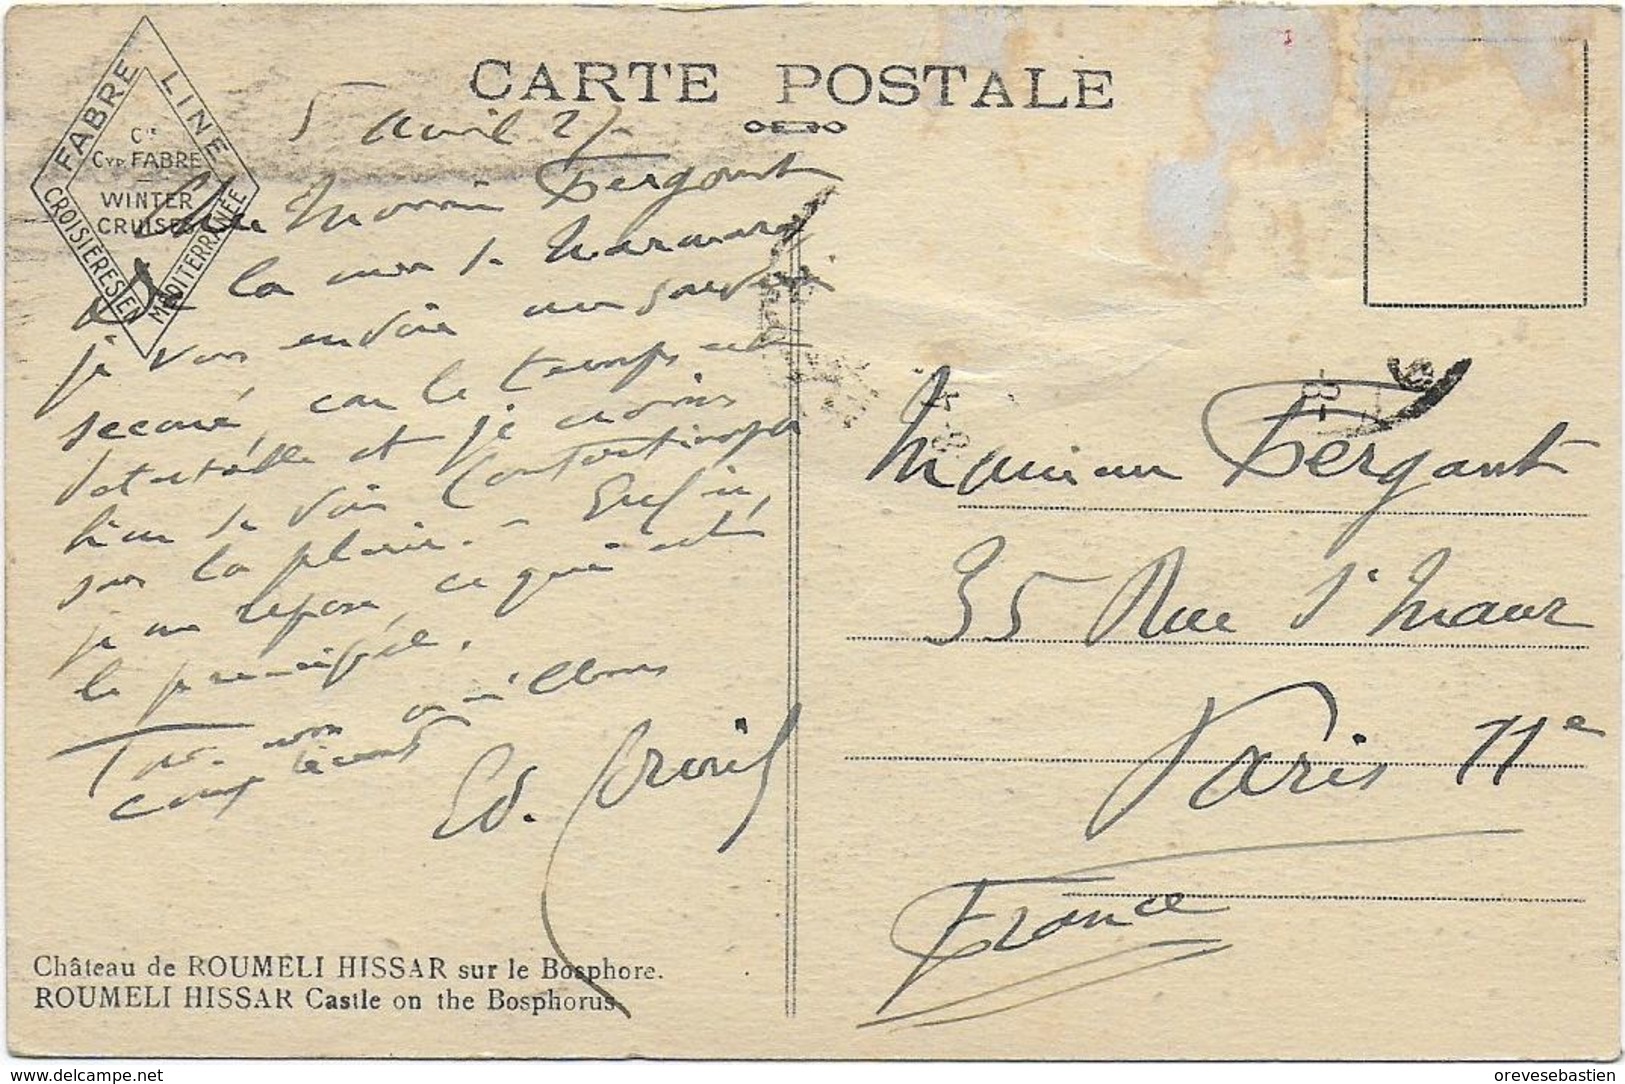 CARTE POSTALE
FABRE LINE
Cie
Cyp. FABRE
WINTER
CRUISES
CROISIÈRES EN
MÉDITERRANÉE
5 avril 27
Cher Dergant
De la mer de Marmara
je vous envoie un
secoué, car le temps est
détestable et je
de voir Constantinople
sur la Enfin,
je me repose, ce qui est
le principal.
Ed.
Dergant
35 Rue St Maur
Paris 11e
France
Château de ROUMELI HISSAR sur le Bosphore.
ROUMELI HISSAR Castle on the Bosphorus.
www.delcampe.net
orevesebastien